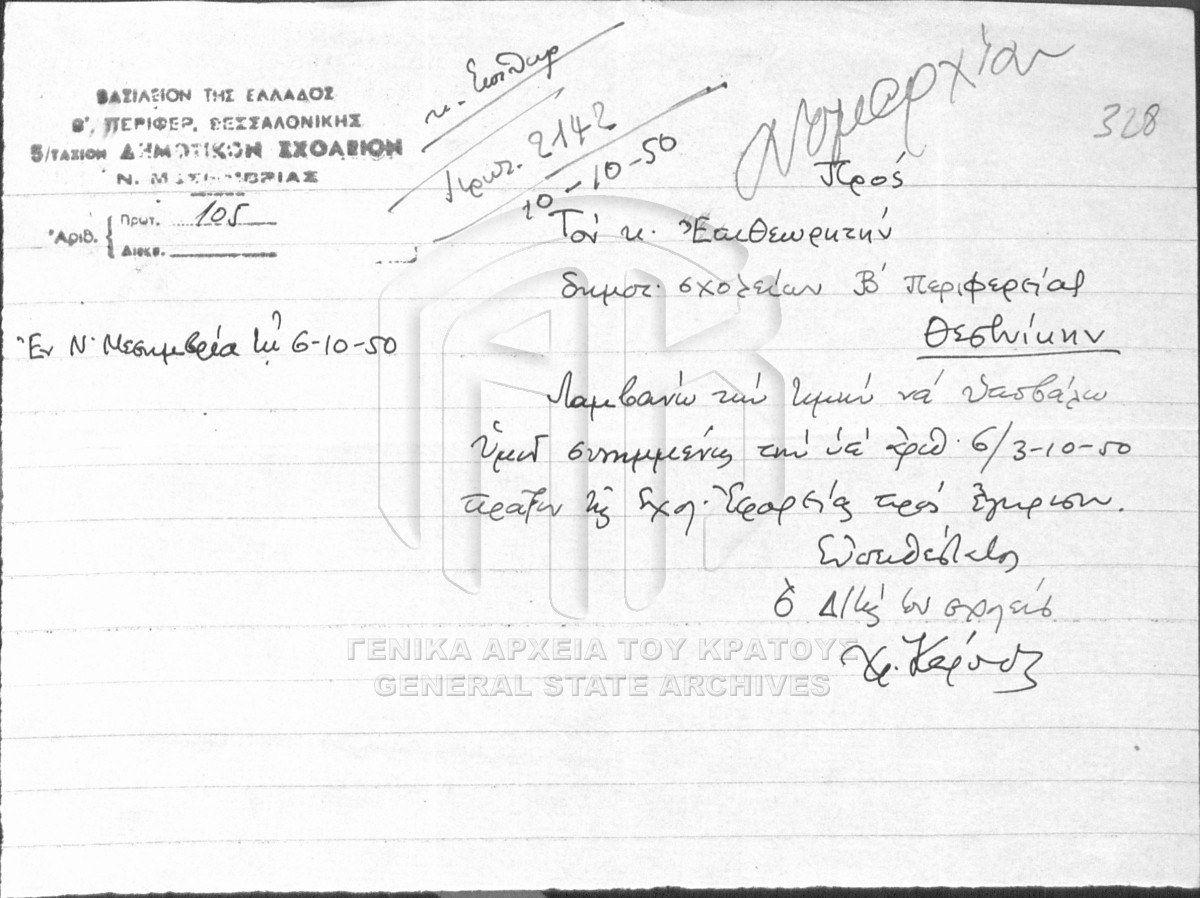 ΒΑΣΙΛΕΙΟΝ ΤΗΣ ΕΛΛΑΔΟΣ
Β΄. ΠΕΡΙΦΕΡ. ΘΕΣΣΑΛΟΝΙΚΗΣ
5/ΤΑΞΙΟΝ ΔΗΜΟΤΙΚΟΝ ΣΧΟΛΕΙΟΝ
Ν. ΜΕΣΗΜΒΡΙΑΣ
Ἀριθ. { Πρωτ. 105
Διεκπ.
Πρωτ. 2142
10-10-50
Νομαρχίαν
328
Πρός
Τόν κ. Ἐπιθεωρητήν
δημοτ. σχολείων Β΄ Περιφερείας
Θεσ/νίκην
Ἐν Ν. Μεσημβρίᾳ τῇ 6-10-50
Λαμβάνω τήν τιμήν νά ὑποβάλω
Ὑμῖν συνημμένως τήν ὑπ' ἀριθ. 6/3-10-50
πρᾶξιν τῆς Σχολ. Ἐφορείας πρός ἔγκρισιν.
Εὐπειθέστατος
Ὁ Δ/τής τοῦ σχολείου
Χρ.
ΓΕΝΙΚΑ ΑΡΧΕΙΑ ΤΟΥ ΚΡΑΤΟΥΣ
GENERAL STATE ARCHIVES